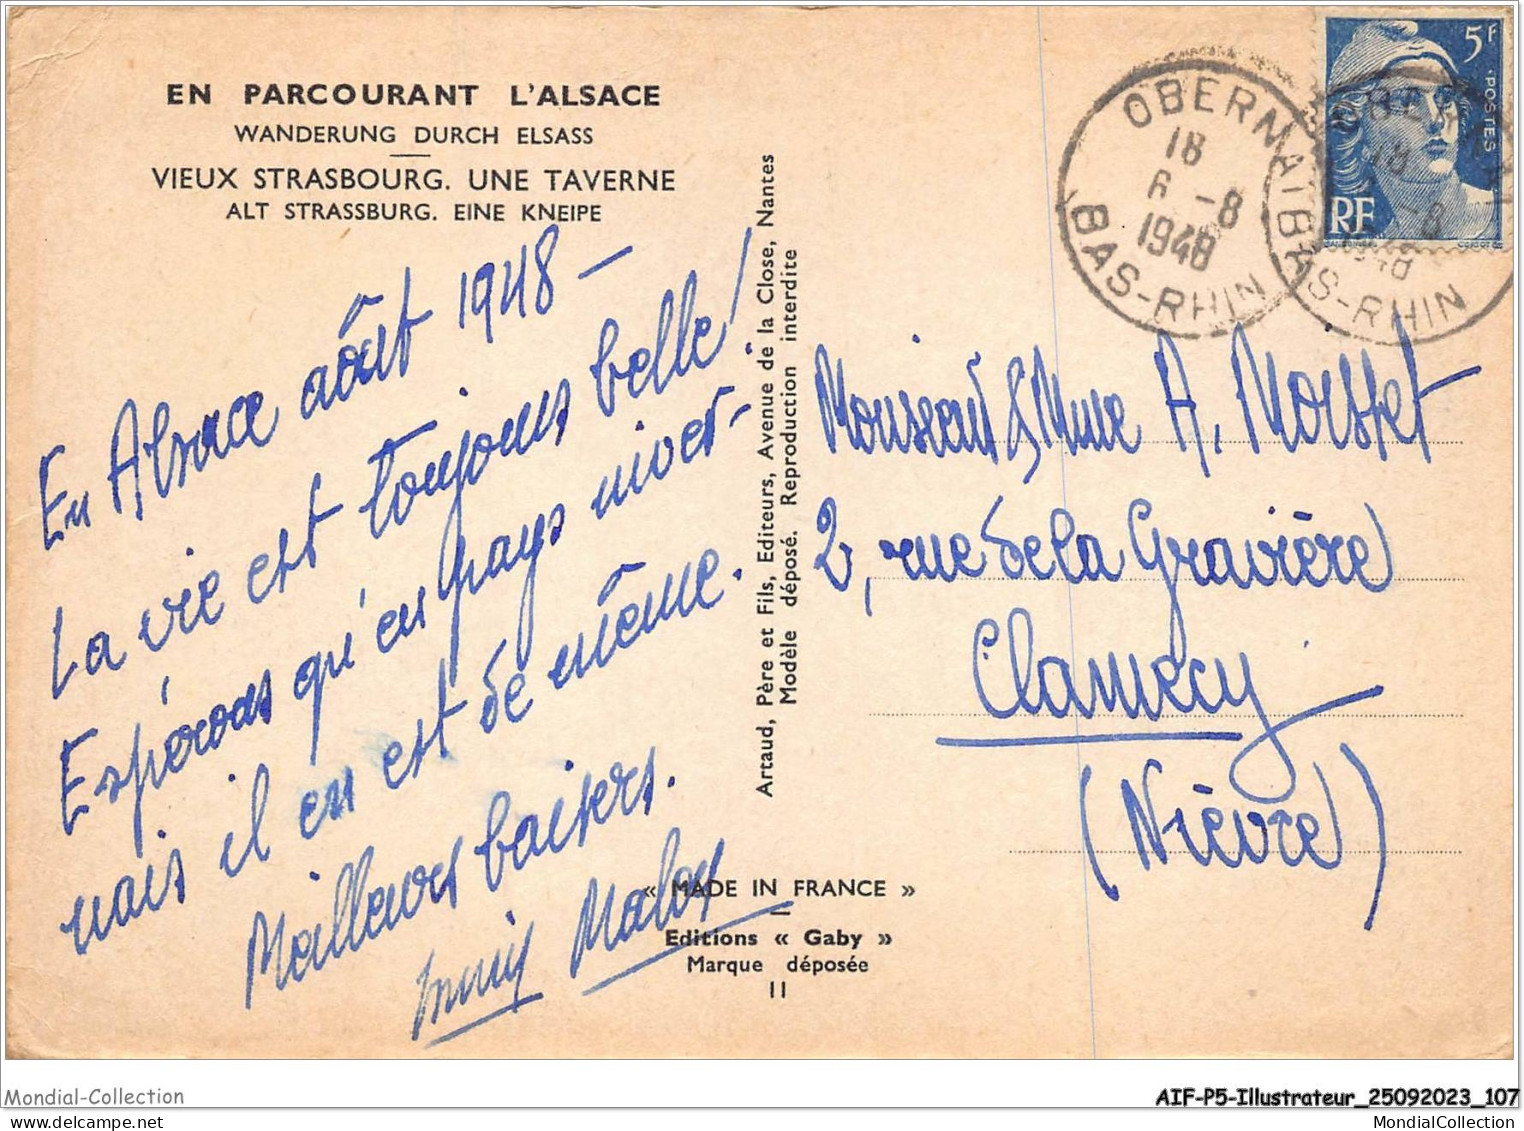 EN PARCOURANT L'ALSACE
WANDERUNG DURCH ELSASS
VIEUX STRASBOURG. UNE TAVERNE
ALT STRASSBURG. EINE KNEIPE
En Alsace août 1948 –
La vie est toujours belle!
Espérons qu'en pays niver-
nais il en est de même.
Meilleurs baisers.
Malou
Artaud, Père et Fils, Editeurs, Avenue de la Close, Nantes
Modèle déposé. Reproduction interdite
« MADE IN FRANCE »
Editions « Gaby »
Marque déposée
11
OBERNAI
18
6 -8
1948
BAS-RHIN
OBERNAI
18
-8
1948
BAS-RHIN
5f
POSTES
RF
Monsieur & Mme A. Moisset
2, rue de la Gravière
Clamecy
(Nièvre)
Mondial-Collection
AIF-P5-Illustrateur_25092023_107
MondialCollection